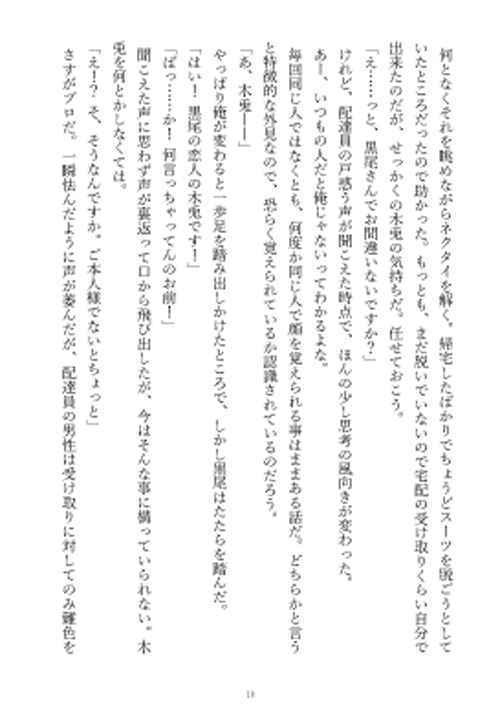 何となくそれを眺めながらネクタイを解く。帰宅したばかりでちょうどスーツを脱ごうとして
いたところだったので助かった。もっとも、まだ脱いでいないので宅配の受け取りくらい自分で
出来たのだが、せっかくの木兎の気持ちだ。任せておこう。
「え……っと、黒尾さんでお間違いないですか？」
けれど、配達員の戸惑う声が聞こえた時点で、ほんの少し思考の風向きが変わった。
あー、いつもの人だと俺じゃないってわかるよな。
毎回同じ人ではなくとも、何度か同じ人で顔を覚えられる事はままある話だ。どちらかと言う
と特徴的な外見なので、恐らく覚えられているか認識されているのだろう。
「あ、木兎――」
やっぱり俺が変わると一歩足を踏み出しかけたところで、しかし黒尾はたたらを踏んだ。
「はい！　黒尾の恋人の木兎です！」
「ばっ……か！　何言っちゃってんのお前！」
聞こえた声に思わず声が裏返って口から飛び出したが、今はそんな事に構っていられない。木
兎を何とかしなくては。
「え！？　そ、そうなんですか。ご本人様でないとちょっと」
さすがプロだ。一瞬怯んだように声が萎んだが、配達員の男性は受け取りに対してのみ難色を